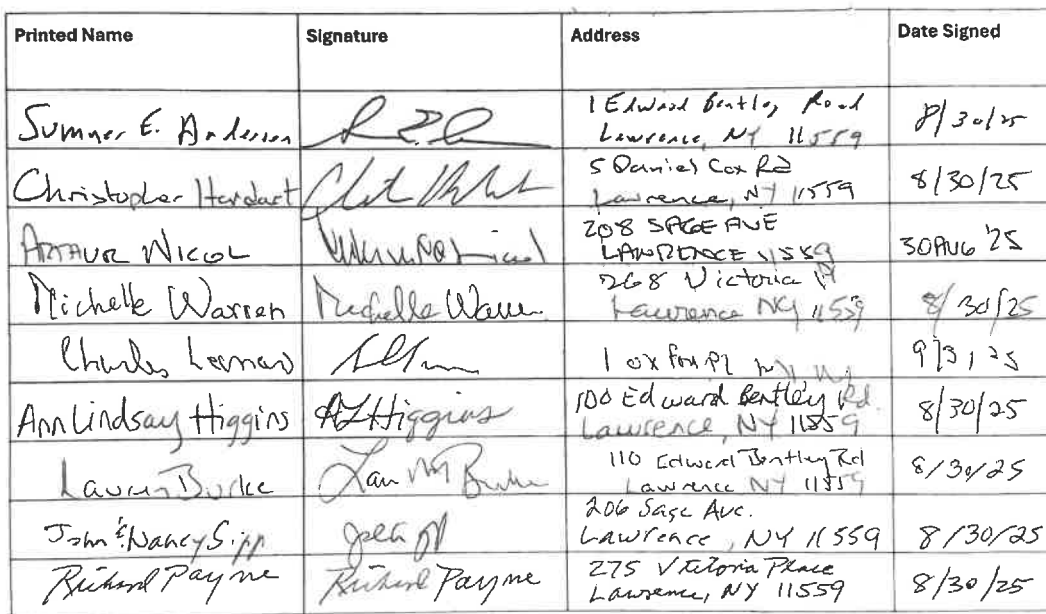 Printed Name Signature Address Date Signed
Sumner E. Anderson 1 Edward Bentley Road
Lawrence, NY 11559 8/30/25
Christopher Hardart 5 Daniel Cox Rd
Lawrence, NY 11559 8/30/25
ARTHUR NICOL 208 SAGE AVE
LAWRENCE 11559 30AUG '25
Michelle Warren Michelle Warren 268 Victoria Pl
Lawrence NY 11559 8/30/25
Charles Leonard 1 ox 9/3/25
Ann Lindsay Higgins ALHiggins 100 Edward Bentley Rd.
Lawrence, NY 11559 8/30/25
Lauren Burke 110 Edward Bentley Rd
Lawrence NY 11559 8/30/25
John & Nancy Sipp 206 Sage Ave.
Lawrence, NY 11559 8/30/25
Richard Payne Richard Payne 275 Victoria Place
Lawrence, NY 11559 8/30/25